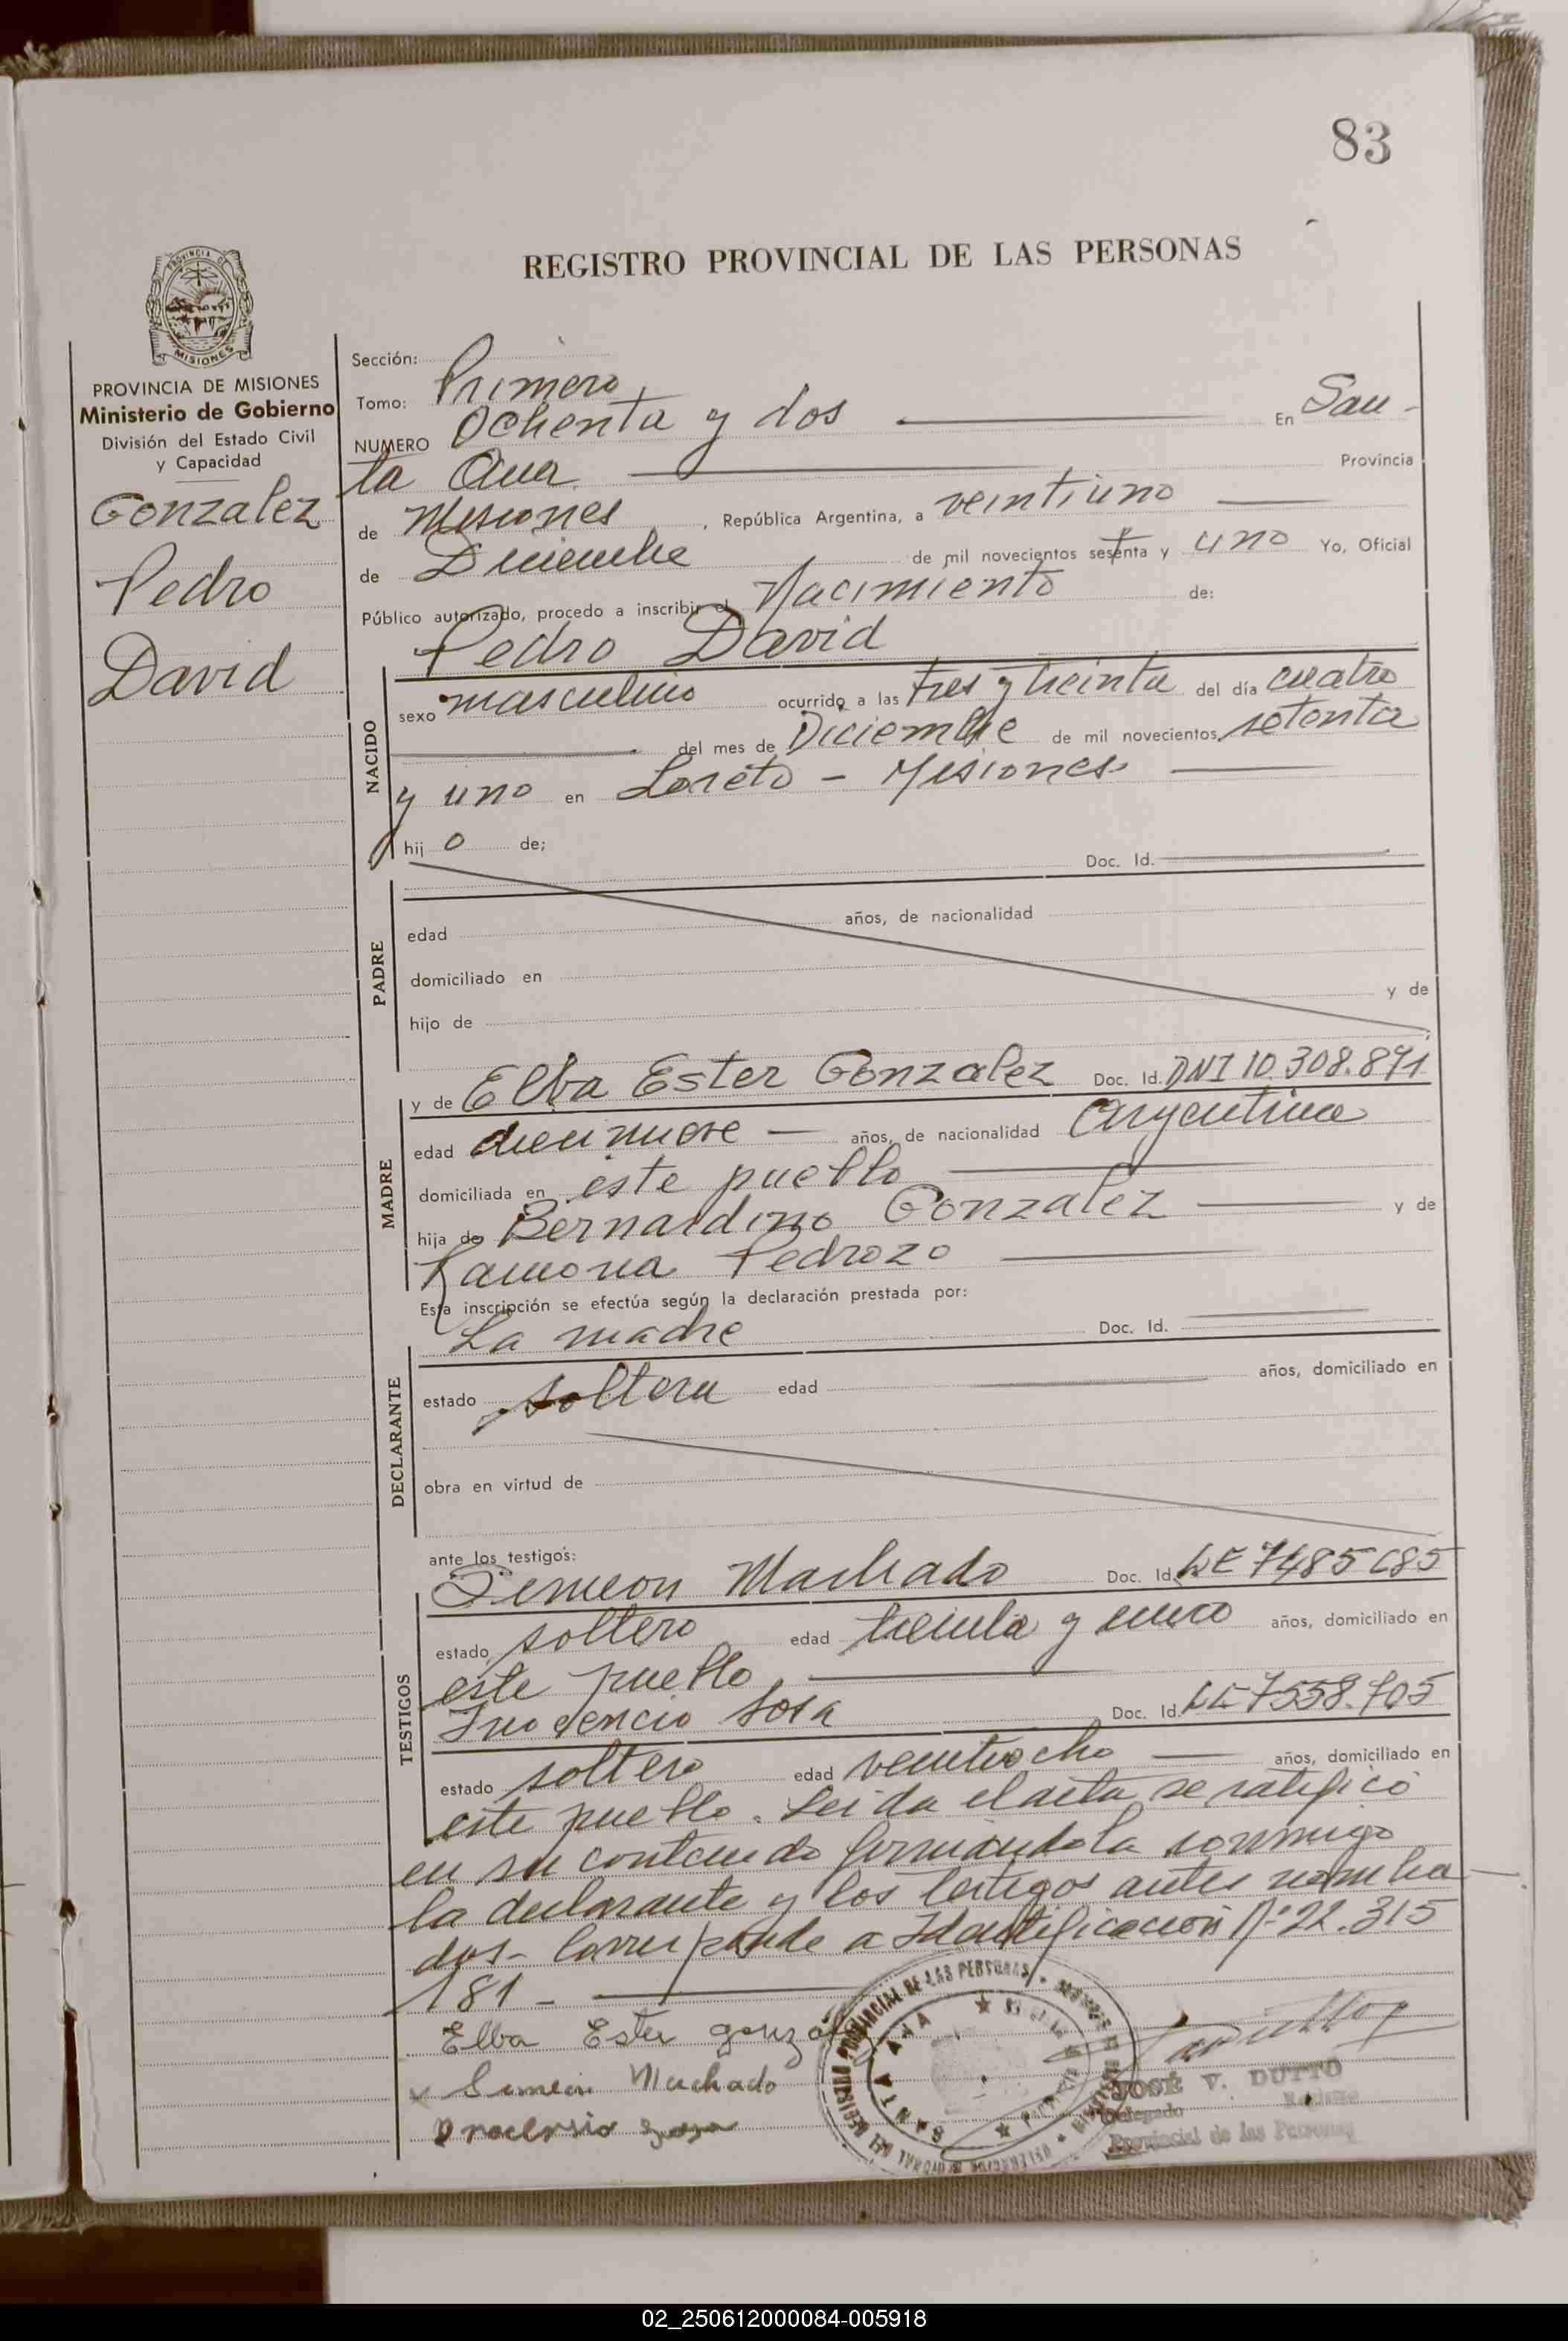 83
REGISTRO PROVINCIAL DE LAS PERSONAS
PROVINCIA DE MISIONES
Ministerio de Gobierno
División del Estado Civil
y Capacidad
Gonzalez
Pedro
David
Sección:
Tomo: Primero
NUMERO Ochenta y dos En San-
ta Ana Provincia
de Misiones, República Argentina, a veintiuno
de Diciembre de mil novecientos setenta y uno Yo, Oficial
Público autorizado, procedo a inscribir el Nacimiento de:
Pedro David
NACIDO
sexo masculino ocurrido a las tres y treinta del día cuatro
del mes de Diciembre de mil novecientos setenta
y uno en Loreto - Misiones
hijo de;
Doc. Id.
PADRE
edad años, de nacionalidad
domiciliado en
hijo de y de
MADRE
y de Elba Ester Gonzalez Doc. Id. DNI 10.308.891
edad diecinueve años, de nacionalidad Argentina
domiciliada en este pueblo
hija de Bernardino Gonzalez y de
Ramona Pedrozo
Esta inscripción se efectúa según la declaración prestada por:
La madre Doc. Id.
DECLARANTE
estado soltera edad años, domiciliado en
obra en virtud de
ante los testigos:
Simeon Machado Doc. Id. LE 7485685
TESTIGOS
estado soltero edad treinta y cinco años, domiciliado en
este pueblo
Inocencio Sosa Doc. Id. LE 7558.705
estado soltero edad veintiocho años, domiciliado en
este pueblo. Leida el acta se ratificó
en su contenido firmándola conmigo
la declarante y los testigos antes nombra
dos- Corresponde a Identificación Nº 22.315
181-
Elba Ester gonzález
Simeon Machado
JOSÉ V. DUTTO
Delegado
Provincial de las Personas
SANTA ANA
02_250612000084-005918